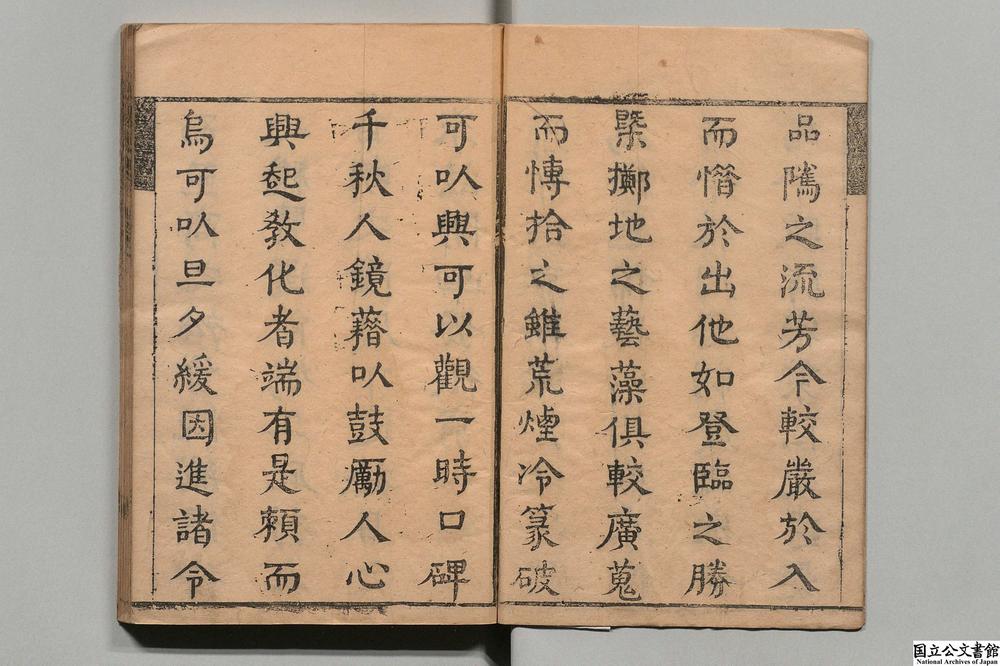 品隲之流芳今較嚴於入
而憯於出他如登臨之勝
槩擲地之藝藻俱較廣蒐
而慱拾之雖荒煙冷篆破
可㕥興可以觀一時口碑
千秋人鏡藉㕥鼓勵人心
興起敎化者端有是賴而
烏可㕥旦夕緩因進諸令
国立公文書館
National Archives of Japan